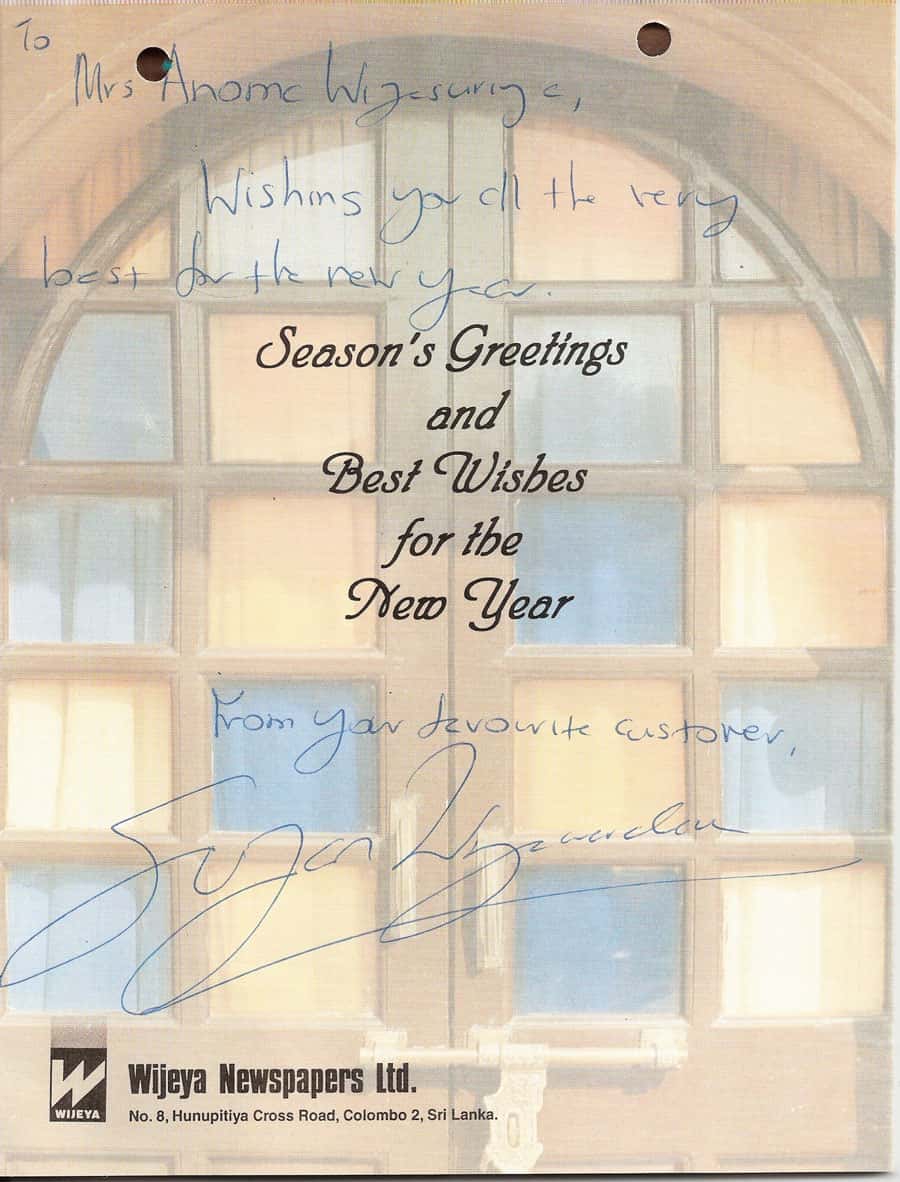 To
Mrs Anoma Wijesuriya,
Wishing you all the very
best for the new year.
Season's Greetings
and
Best Wishes
for the
New Year
From your favourite customer,
Sujan Wijewardena
W
WIJEYA
Wijeya Newspapers Ltd.
No. 8, Hunupitiya Cross Road, Colombo 2, Sri Lanka.